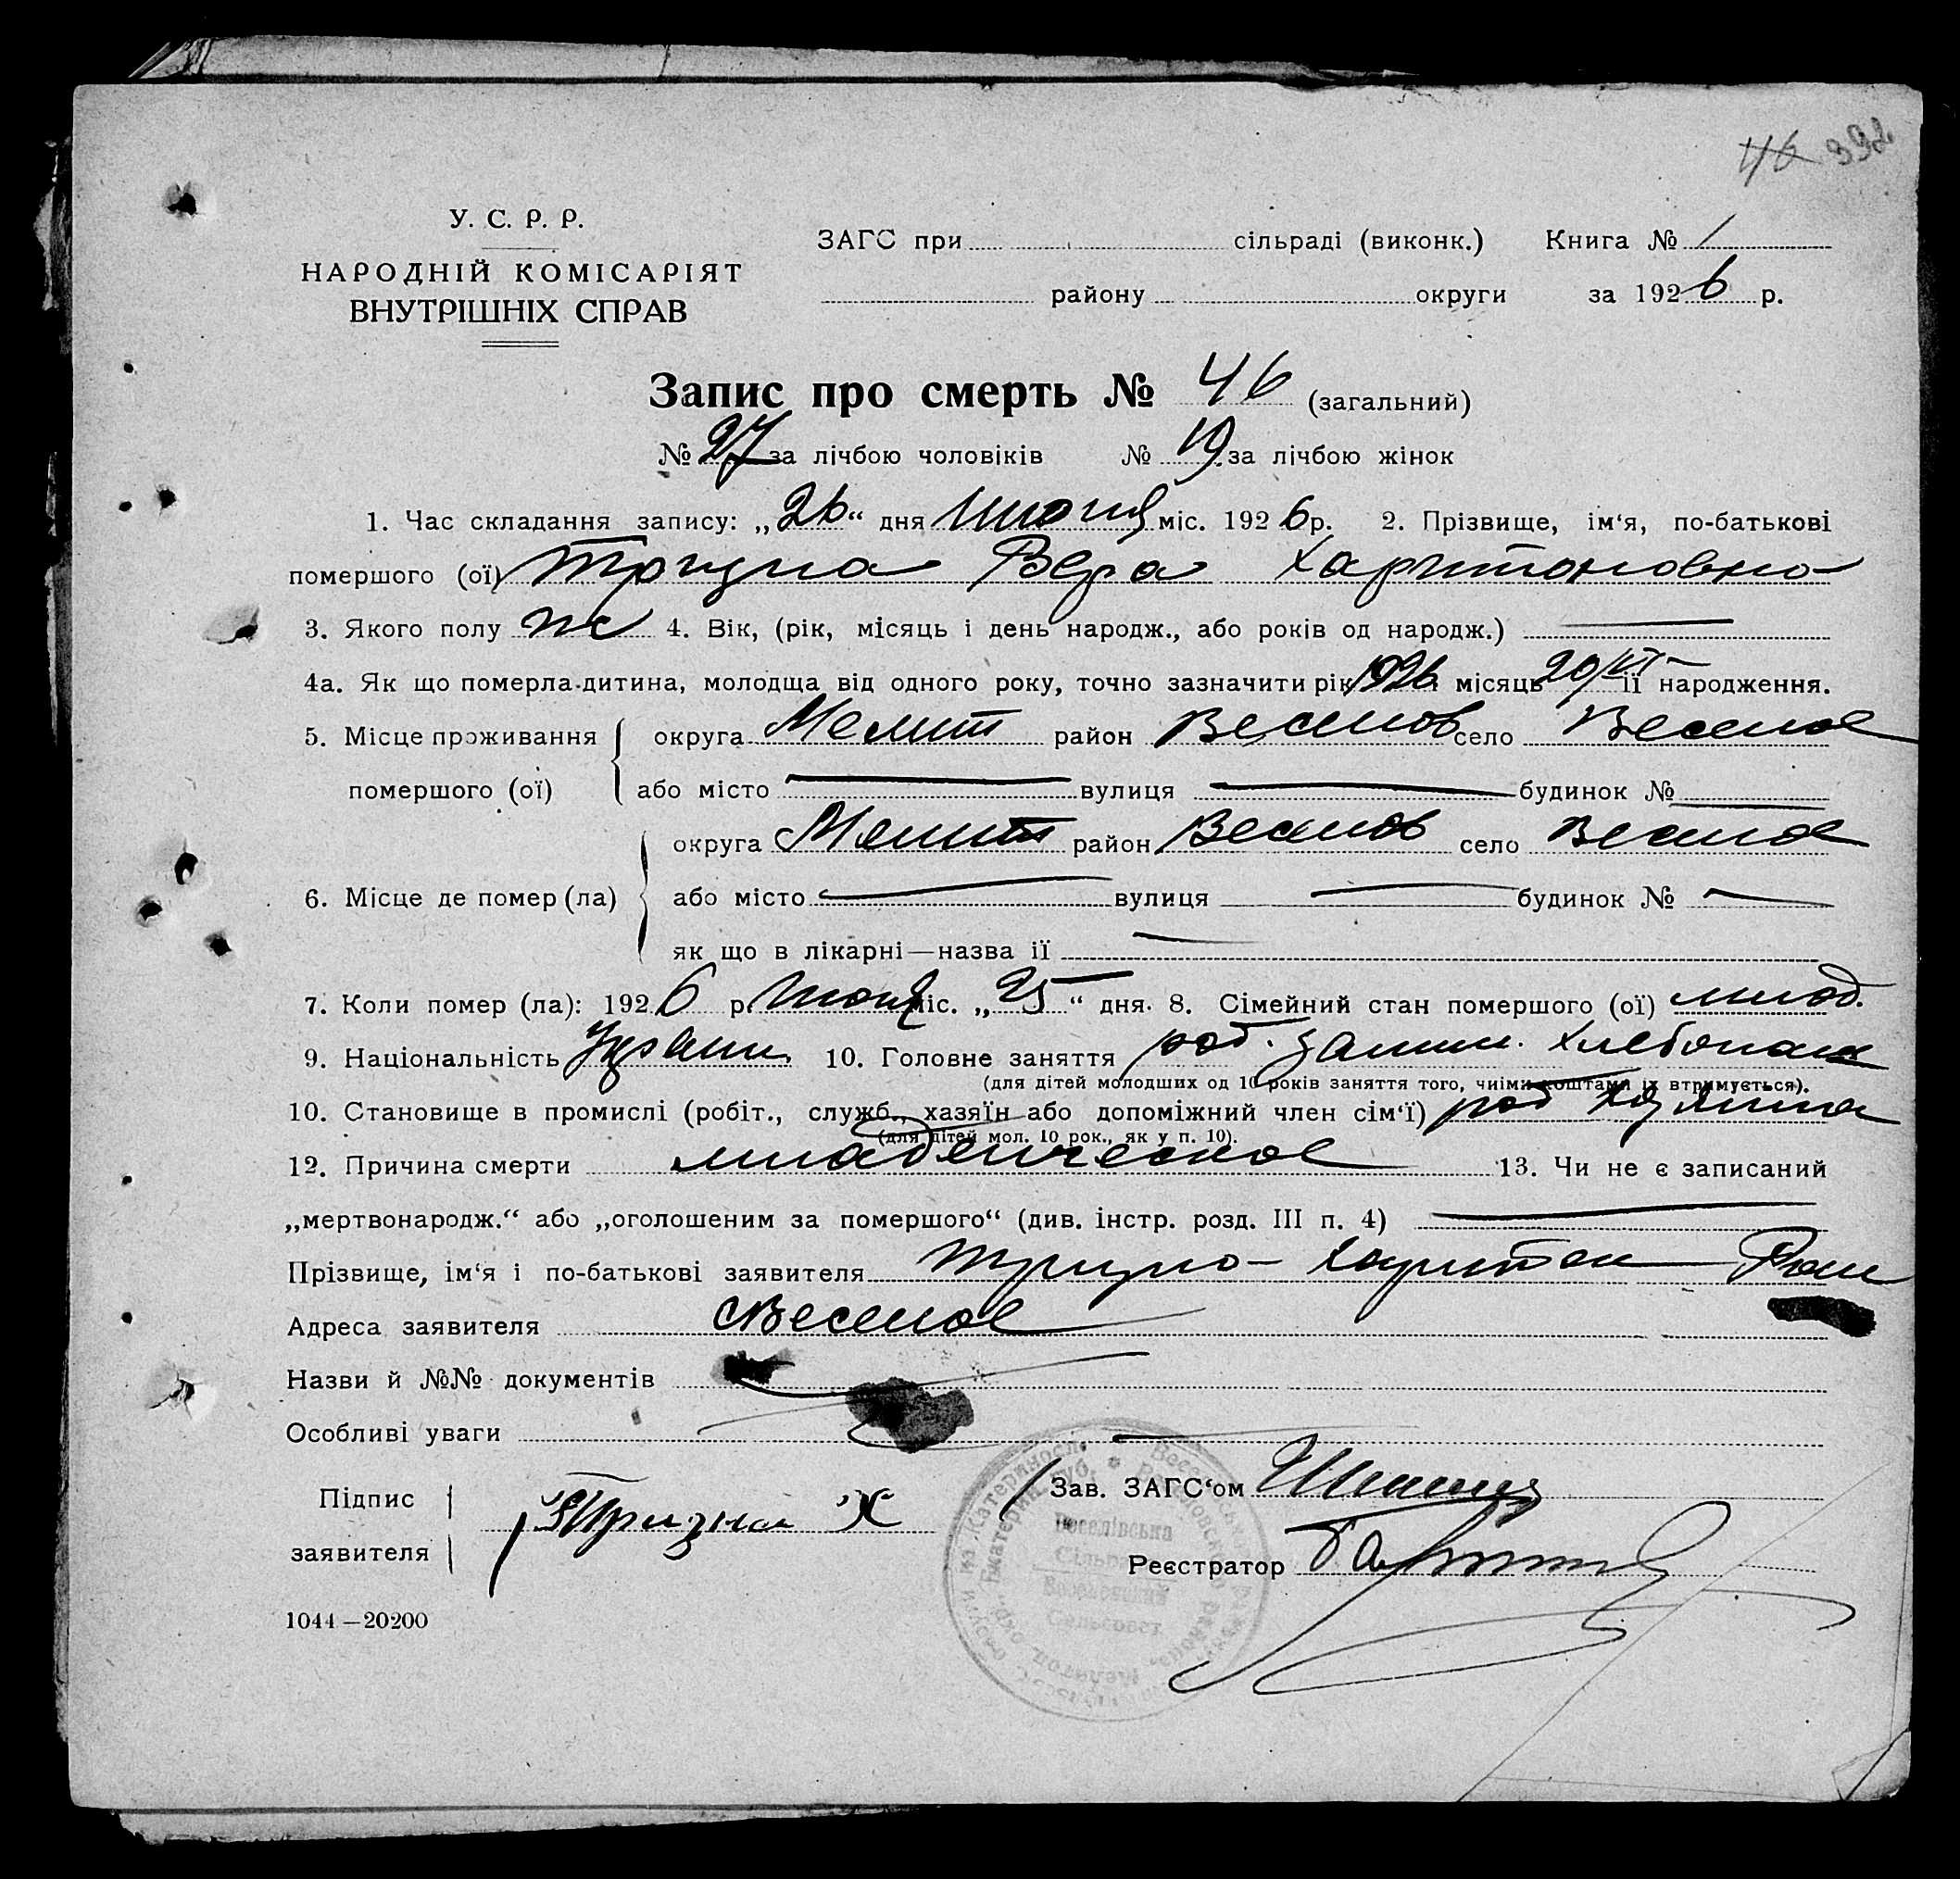 46 392
У. С. Р. Р.
НАРОДНІЙ КОМІСАРІЯТ
ВНУТРІШНІХ СПРАВ
ЗАГС при сільраді (виконк.) Книга № 1
району округи за 1926 р.
Запис про смерть № 46 (загальний)
№ 27 за лічбою чоловіків № 19 за лічбою жінок
1. Час складання запису: „26“ дня Июня міс. 1926 р. 2. Прізвище, ім‘я, по-батькові
помершого (ої) Вера Харитоновно
3. Якого полу ж 4. Вік, (рік, місяць і день народж., або років од народж.) —
4а. Як що померла дитина, молодща від одного року, точно зазначити рік 1926 місяць 20/VI її народження.
5. Місце проживання округа Мелит район Веселов село Веселое
помершого (ої) або місто — вулиця — будинок № —
округа Мелит район Веселов село Веселое
6. Місце де помер (ла) або місто — вулиця — будинок № —
як що в лікарні—назва її —
7. Коли помер (ла): 1926 р. Июня міс. „25“ дня. 8. Сімейний стан помершого (ої) млад.
9. Національність Украин. 10. Головне заняття род. Хлебопаш
(для дітей молодших од 10 років заняття того, чиїми коштами їх втримується).
10. Становище в промислі (робіт., служб., хазяїн або допоміжний член сім‘ї) род хозяина
(для дітей мол. 10 рок., як у п. 10).
12. Причина смерти младенческое 13. Чи не є записаний
„мертвонародж.“ або „оголошеним за помершого“ (див. інстр. розд. III п. 4) —
Прізвище, ім‘я і по-батькові заявителя Харитон
Адреса заявителя с Веселое
Назви й №№ документів
Особливі уваги —
Підпис Зав. ЗАГС‘ом
заявителя Х Реєстратор
Веселівська
Сільрада
Веселовский
Сельсовет
1044—20200